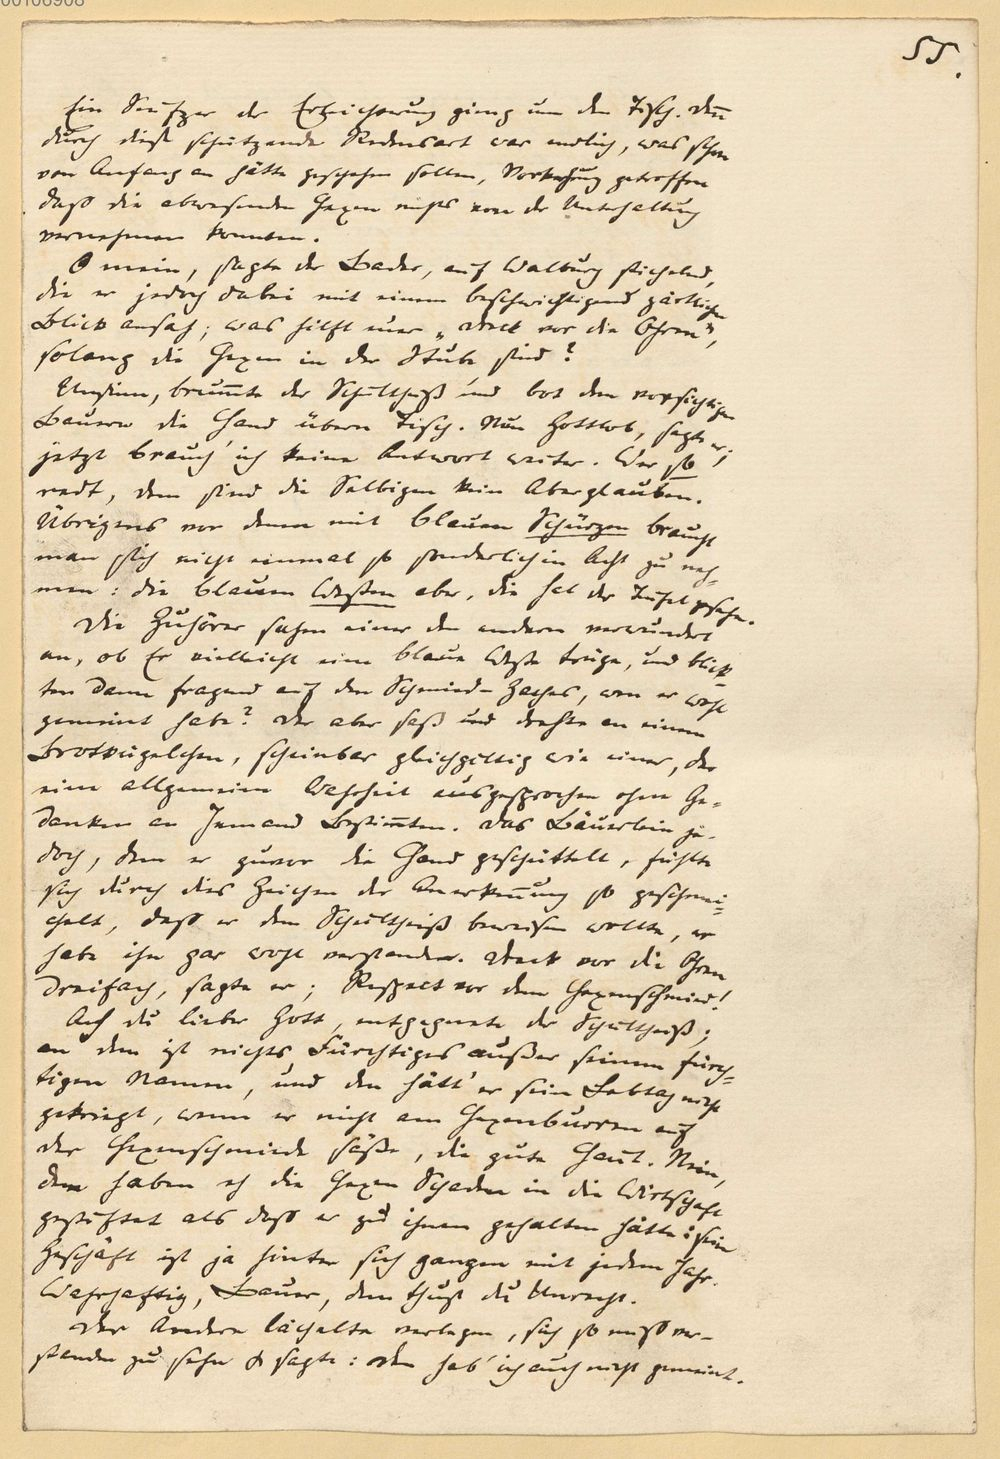 00106908
55.
Ein Seufzer der Erleichterung gieng um den Tisch. Deñ
durch diese schützende Redensart war endlich, was schon
von Anfang an hätte geschehen sollen, Vorkehrung getroffen
daß die abwesenden Hexen nichts von der Unterhaltung
vernehmen konnten.
O mein, sagte der Bader, auf Walburg stichelnd,
die er jedoch dabei mit einem beschwichtigend zärtlichen
Blick ansah; was hilft mer „Dreck vor die Ohren“,
solang die Hexen in der Stube sind?
Unsinn, brum̄te der Schultheiß und bot dem vorsichtigen
Bauern die Hand übern Tisch. Nun Gottlob, sagte er;
jetzt brauch' ich keine Antwort weiter. Wer so
redt, dem sind die Selbigen kein Aberglauben.
Übrigens vor denen mit blauen Schürzen braucht
man sich nicht einmal so sonderlich in Acht zu neh-
men: die blauen Westen aber, die hat der Teufel gsehn.
Die Zuhörer sahen einer den andern verwundert
an, ob Er vielleicht eine blaue Weste trüge, und blick-
ten dann fragend auf den Schmied-Zaches, wen er wohl
gemeint habe? Der aber saß und drehte an einem
Brotkügelchen, scheinbar gleichgiltig wie einer, der
eine allgemeine Wahrheit ausgesprochen ohne Ge-
danken an Jemand Bestim̄ten. Das Bäuerlein je-
doch, dem er zuvor die Hand geschüttelt, fühlte
sich durch dies Zeichen der Anerken̄ung so geschmei-
chelt, daß er dem Schultheiß beweisen wollte, er
habe ihn gar wohl verstanden. Dreck vor die Ohren
dreifach, sagte er; Respect vor dem Hexenschmied!
Ach du lieber Gott, entgegnete der Schultheiß;
an dem ist nichts Fürchtiges außer seinem fürch-
tigen Namen, und den hätt' er sein Lebtag nicht
gekriegt, wenn er nicht am Hexenburren auf
der Hexenschmiede säße, die gute Haut. Nein,
dem haben eh die Hexen Schaden in die Wirtschaft
gestiftet als daß er zu ihnen gehalten hätte: sein
Geschäft ist ja hinter sich gangen mit jedem Jahr.
Wahrhaftig, Bauer, dem thust du Unrecht.
Der Andere lächelte verlegen, sich so mißver-
standen zu sehn & sagte: Den hab' ich auch nicht gemeint.